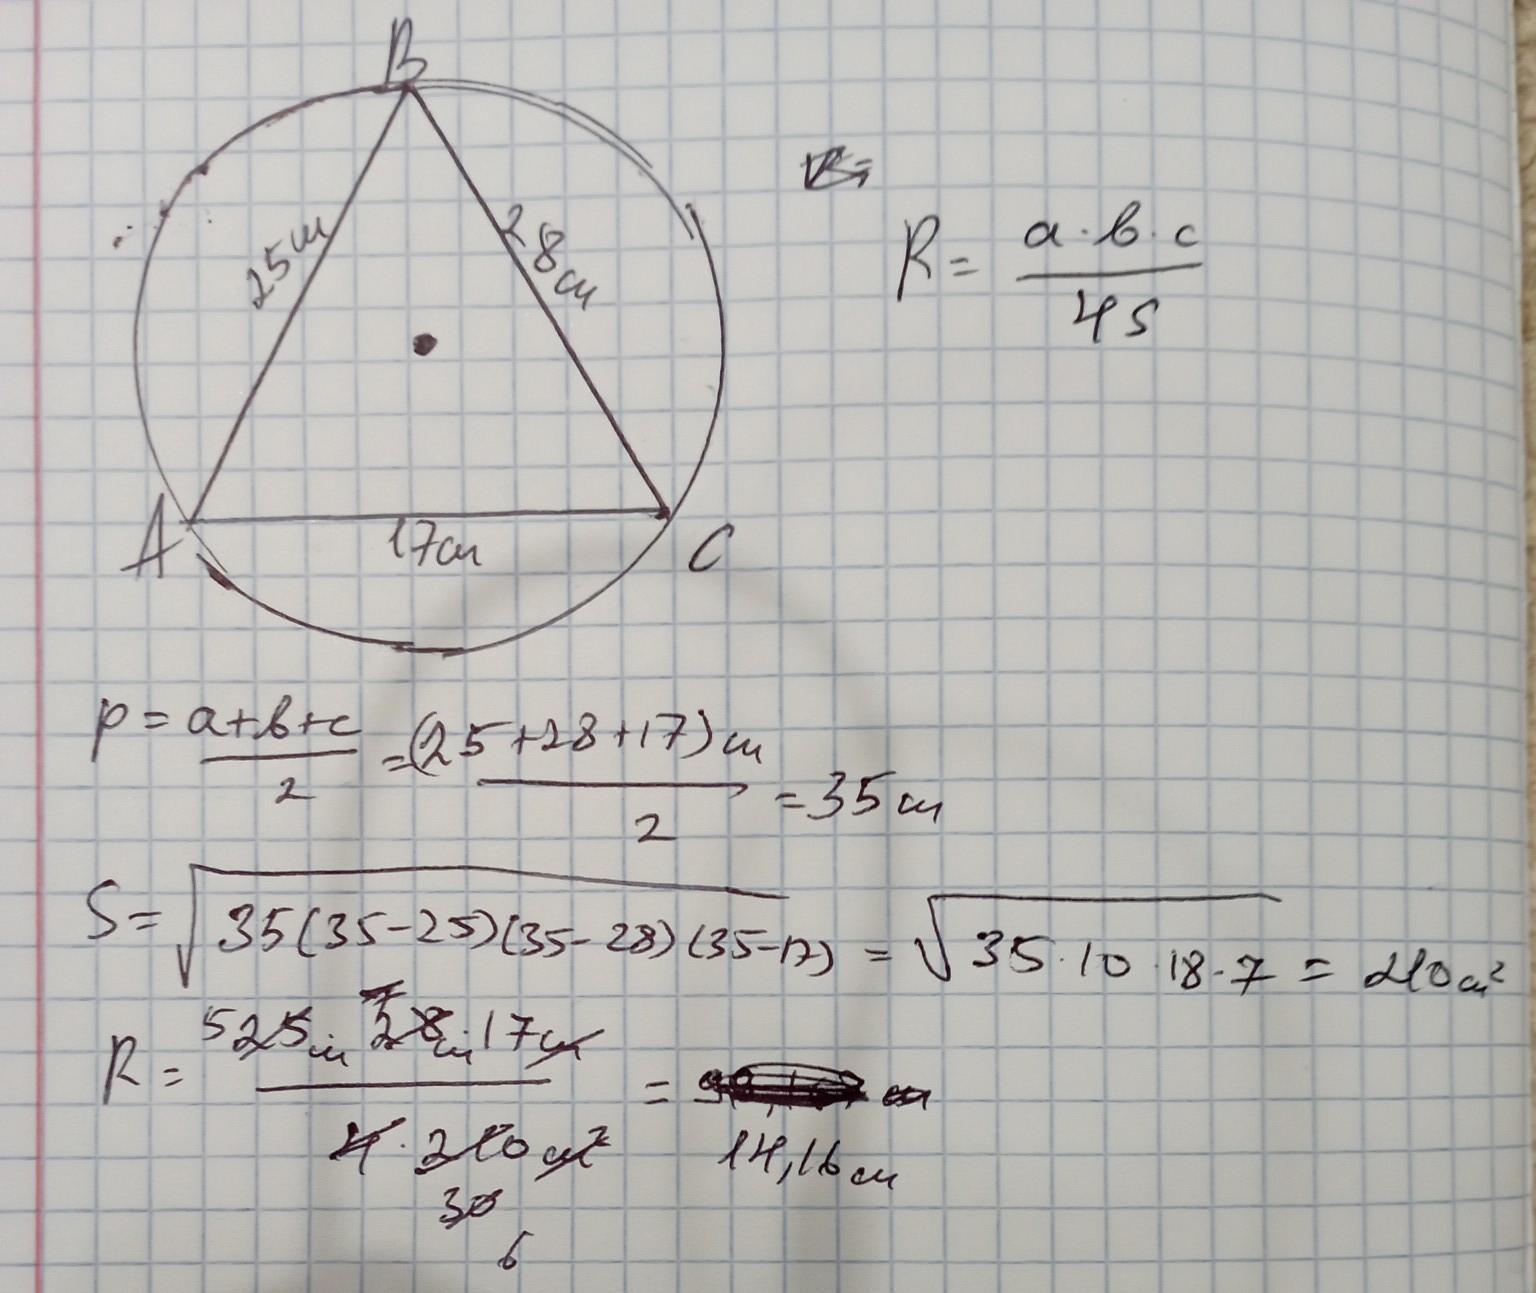 B
25см
28см
A
17см
C
R = a·b·c / 4S
p = a+b+c / 2 = (25+28+17)см / 2 = 35см
S = √35(35-25)(35-28)(35-17) = √35·10·18·7 = 210см²
R = 5 25см 7 28см·17см / 4·210см² = 14,16см
30
6